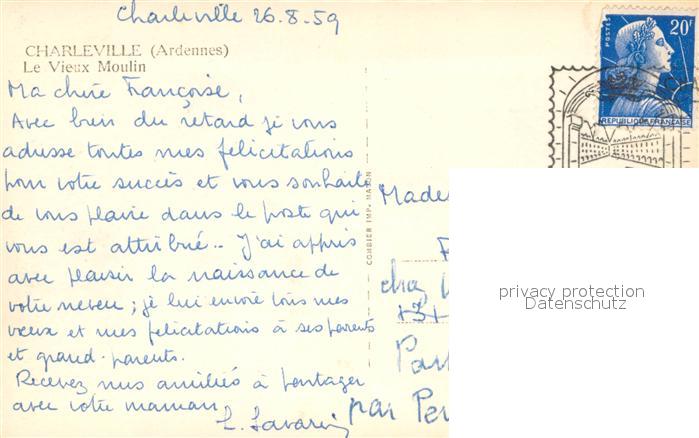 Charleville 26-8-59
CHARLEVILLE (Ardennes)
Le Vieux Moulin
Ma chère Françoise,
Avec bien du retard je vous
adresse toutes mes félicitations
pour votre succès et vous souhaite
de vous plaire dans le poste qui
vous est attribué.. J'ai appris
avec plaisir la naissance de
votre neveu ; je lui envoie tous mes
vœux et mes félicitations à ses parents
et grand-parents.
Recevez mes amitiés à partager
avec votre maman
COMBIER IMP. MACON
POSTES
20F
REPUBLIQUE FRANÇAISE
Made
chez
par Per
privacy protection
Datenschutz